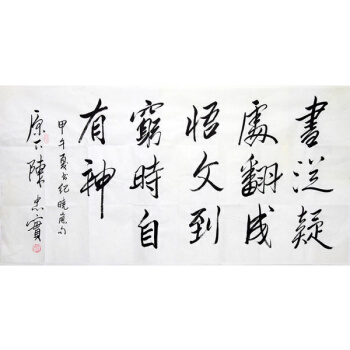 書從疑
處翻成
悟文到
窮時自
有神
甲午夏書紀曉嵐句
原下陳忠實